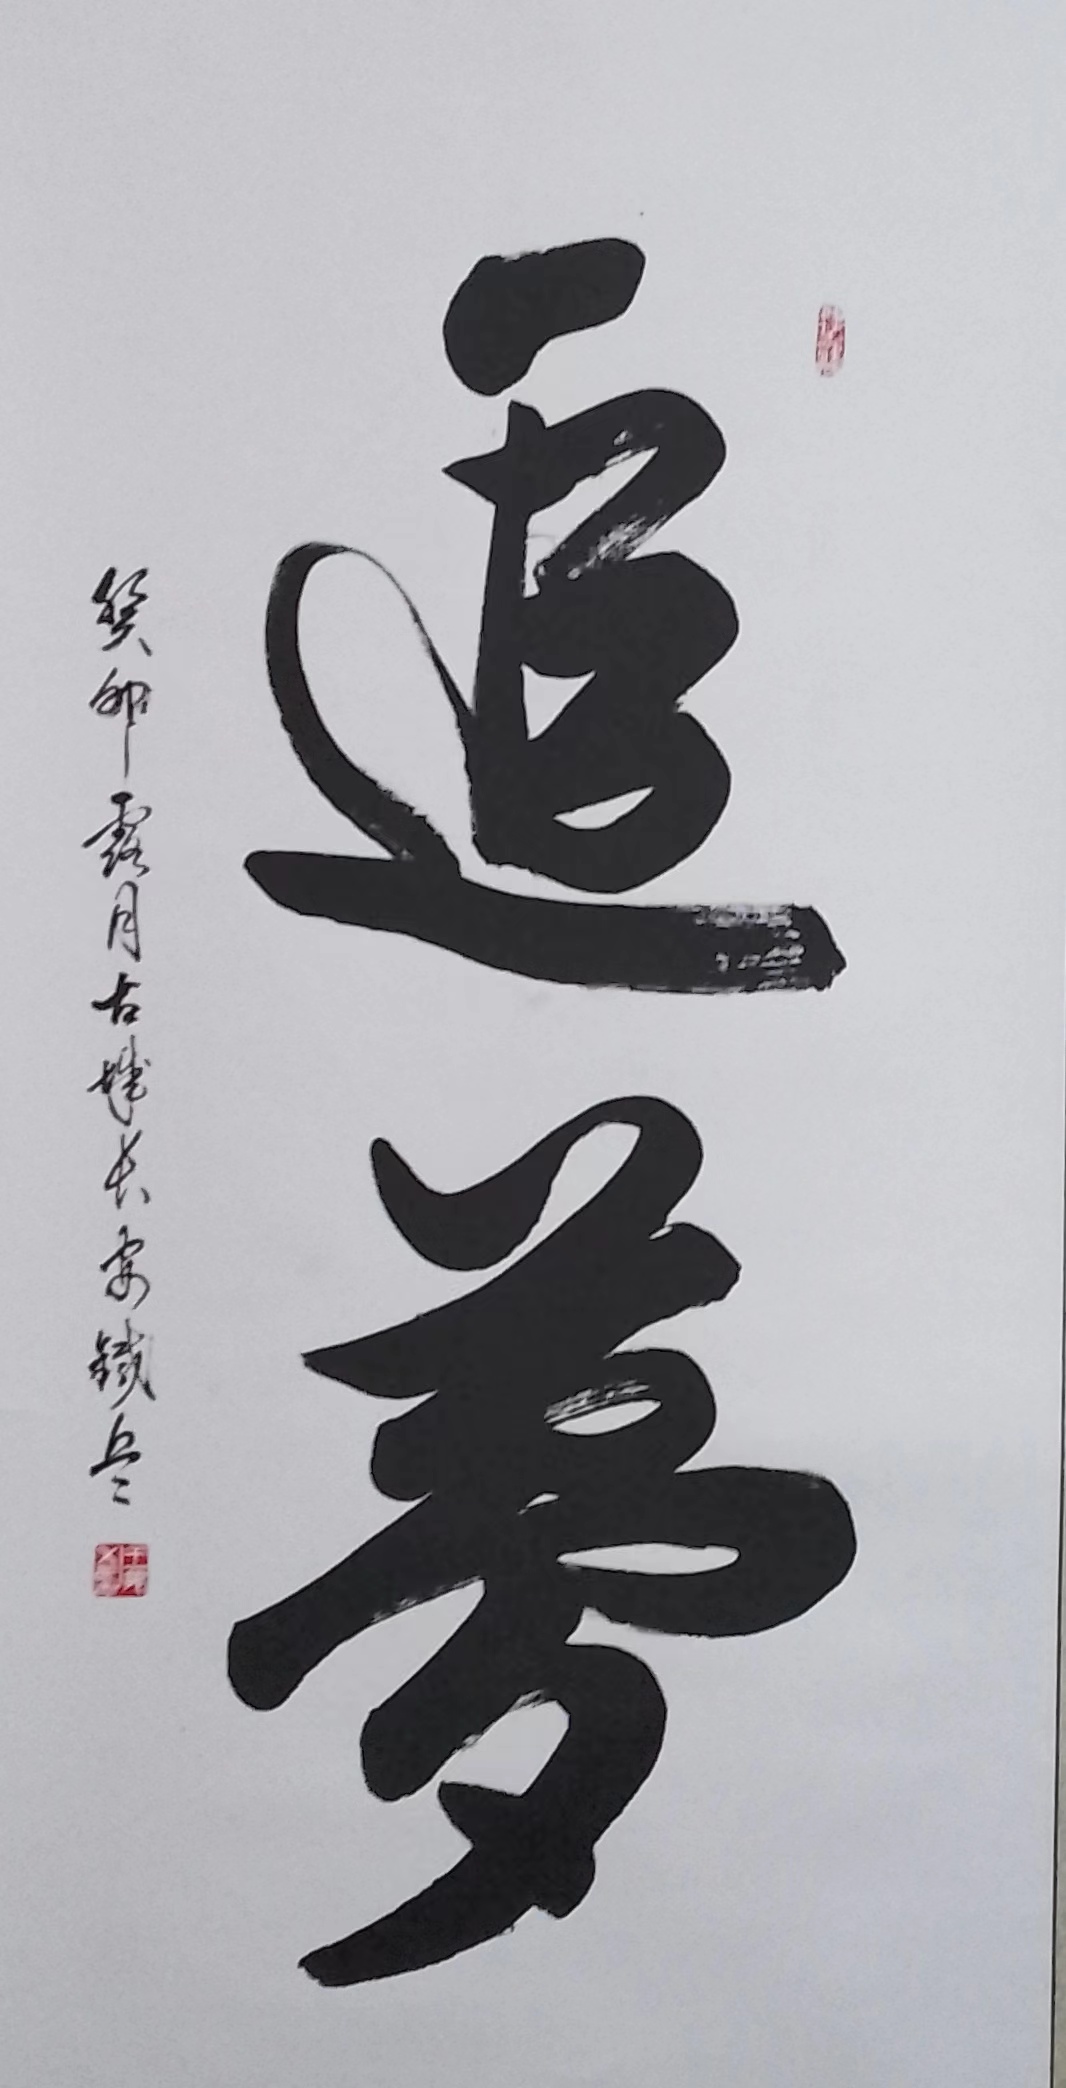 追夢
癸卯露月古城长安鐵兵